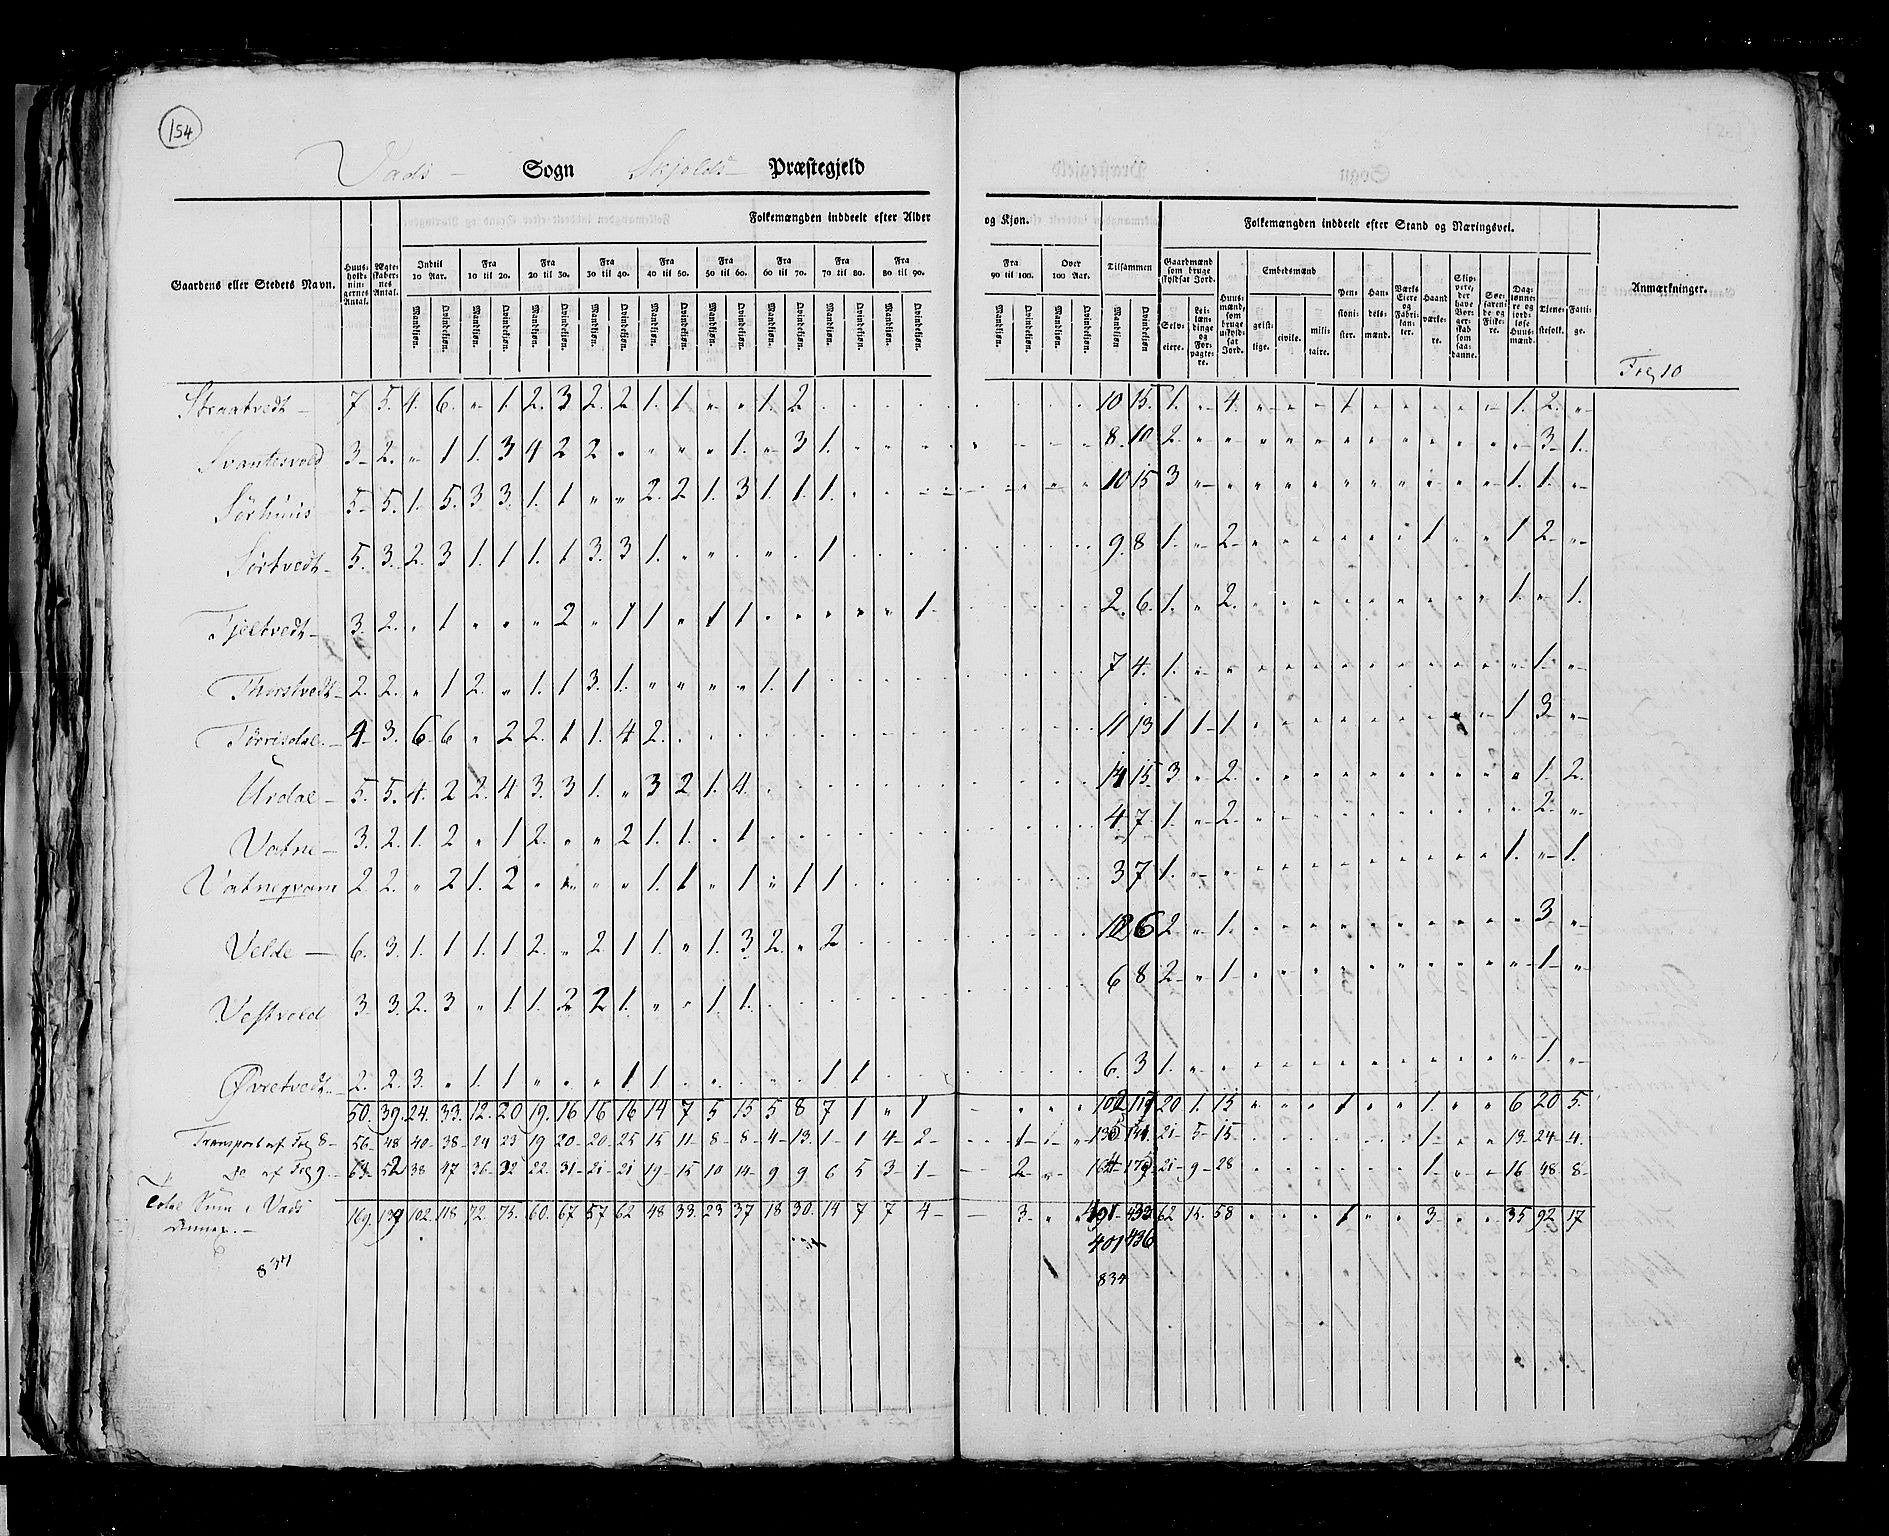 154
Vads Sogn Skjolds Præstegjeld
Folkemængden inddeelt efter Alder og Kjøn.
Folkemængden inddeelt efter Stand og Næringsvei.
Gaardens eller Stedets Navn.
Huus-holdnin-gernes Antal.
Ægte-skaber-nes Antal.
Indtil 10 Aar.
Fra 10 til 20.
Fra 20 til 30.
Fra 30 til 40.
Fra 40 til 50.
Fra 50 til 60.
Fra 60 til 70.
Fra 70 til 80.
Fra 80 til 90.
Fra 90 til 100.
Over 100 Aar.
Tilsammen
Mandkjøn. Qvindekjøn.
Gaardmænd som bruge skyldsat Jord.
Selv-eiere.
Lei-lændinge og For-pagte-re.
Huus-mænd, som bruge uskyld-sat Jord.
Embedsmænd
geist-lige.
civile.
mili-taire.
Pen-sioni-ster.
Han-dels-mænd.
Værks Eiere og Fabri-kanter.
Haand værke-re.
Skip-pere, der have Bor-ger-skab som saa-danne.
Søe-farende og Fiske-re.
Dag-lønne-re og jord-løse Huus-mænd.
Tjene-stefolk.
Fatti-ge.
Anmærkninger.
Fol. 10
Straatvedt 7 5. 4. 6. " 1. 2. 3 2. 2 1. 1 " " 1. 2 10 15. 1. " 4. " " " 1 " " " " " 1. 2. "
Svantesvold 3 2. " 1 1. 3 4 2 2 " " " " 1. " 3 1. 8. 10 2 " " " " " " " " " " " " 3 1.
Sørhuus 5 5. 1. 5. 3 3. 1. 1 " " 2. 2 1. 3 1. 1. 1. 10 15 3 " " " " " " " " " " " 1. 1. "
Sørtvedt 5. 3. 2. 3 1. 1 1. 1 3. 3 1. " " " " " 1 9. 8 1. " 2 " " " " " " 1 " " 1 2 "
Tjeltvedt 3. 2. " 1 " " " 2 " 1 1 " 1 1. " " " " " 1 2. 6. 1. " 2. " " " " " " " " " 1. " 1.
Thorstvedt 2. 2. " 1 2. " 1. 1 3. 1. " " " " 1. 1 7 4. 1. " " " " " " " " " " " " 1. "
Tørrisdal 4 3. 6 6 " 2 2. 1 1. 4 2. 11 13 1 1 1 " " " " " " " " " 1 3 "
Urdal 5. 5. 4. 2 2. 4 3. 3 1. " 3 2 1. 4. 14 15. 3 " 2. " " " " " " " " " " 1. 2.
Vatne 3. 2. 1. 2 " 1 2. " " 2 1. 1. " 1 4. 7 1. " 2 " " " " " " " " " " 2 "
Vatneqvam 2. 2. " 2 1. 2 " " " " 1. 1 " 1 " 1 1 3 7 1. " " " " " " " " " " " 1. " 1.
Velde 6. 3. 1. 1 1. 1 2. " 2 1 1. " 1. 3 2. " 2 12 6 2 " 1. " " " " " " " " " " 3 "
Vestvold 3. 3. 2. 3 " 1 1. 2 2 1. " " 1 1. 6 8 2 " 1 " " " " " " " " " " 1 "
Øvretvedt 2. 2. 3. " 1. 1 " " " 1 1. " " " " " 1 1 6. 3 1. " " " " " " " " " " " " 1. "
50. 39. 24. 33. 12. 20 19. 16 16 16 14 7 5 15 5 8 7 1 " 1 102 119 20 1. 15 " " " 1 " " 1. " " 6 20 5.
Transport af Fol 8 56 48 40 38 24 23 19 20 20 25 15 11 8 8 4 13. 1 1 4 2 1 21 5 15 1 " " 13 24 4.
do af Fol 9 63 52 38 47 36 32 22. 31 21 21 19 15 10 14 9 9 6 5 3 1 2 21 9 28 1 " " 16 48 8
Total Sum i Vads
Annex.
169. 139 102. 118 72. 75. 60. 67 57 62 48 33. 23 37 18 30. 14 7 7 4 3. 391 433 62 15. 58 1 3 35 92 17
401 436
837
834